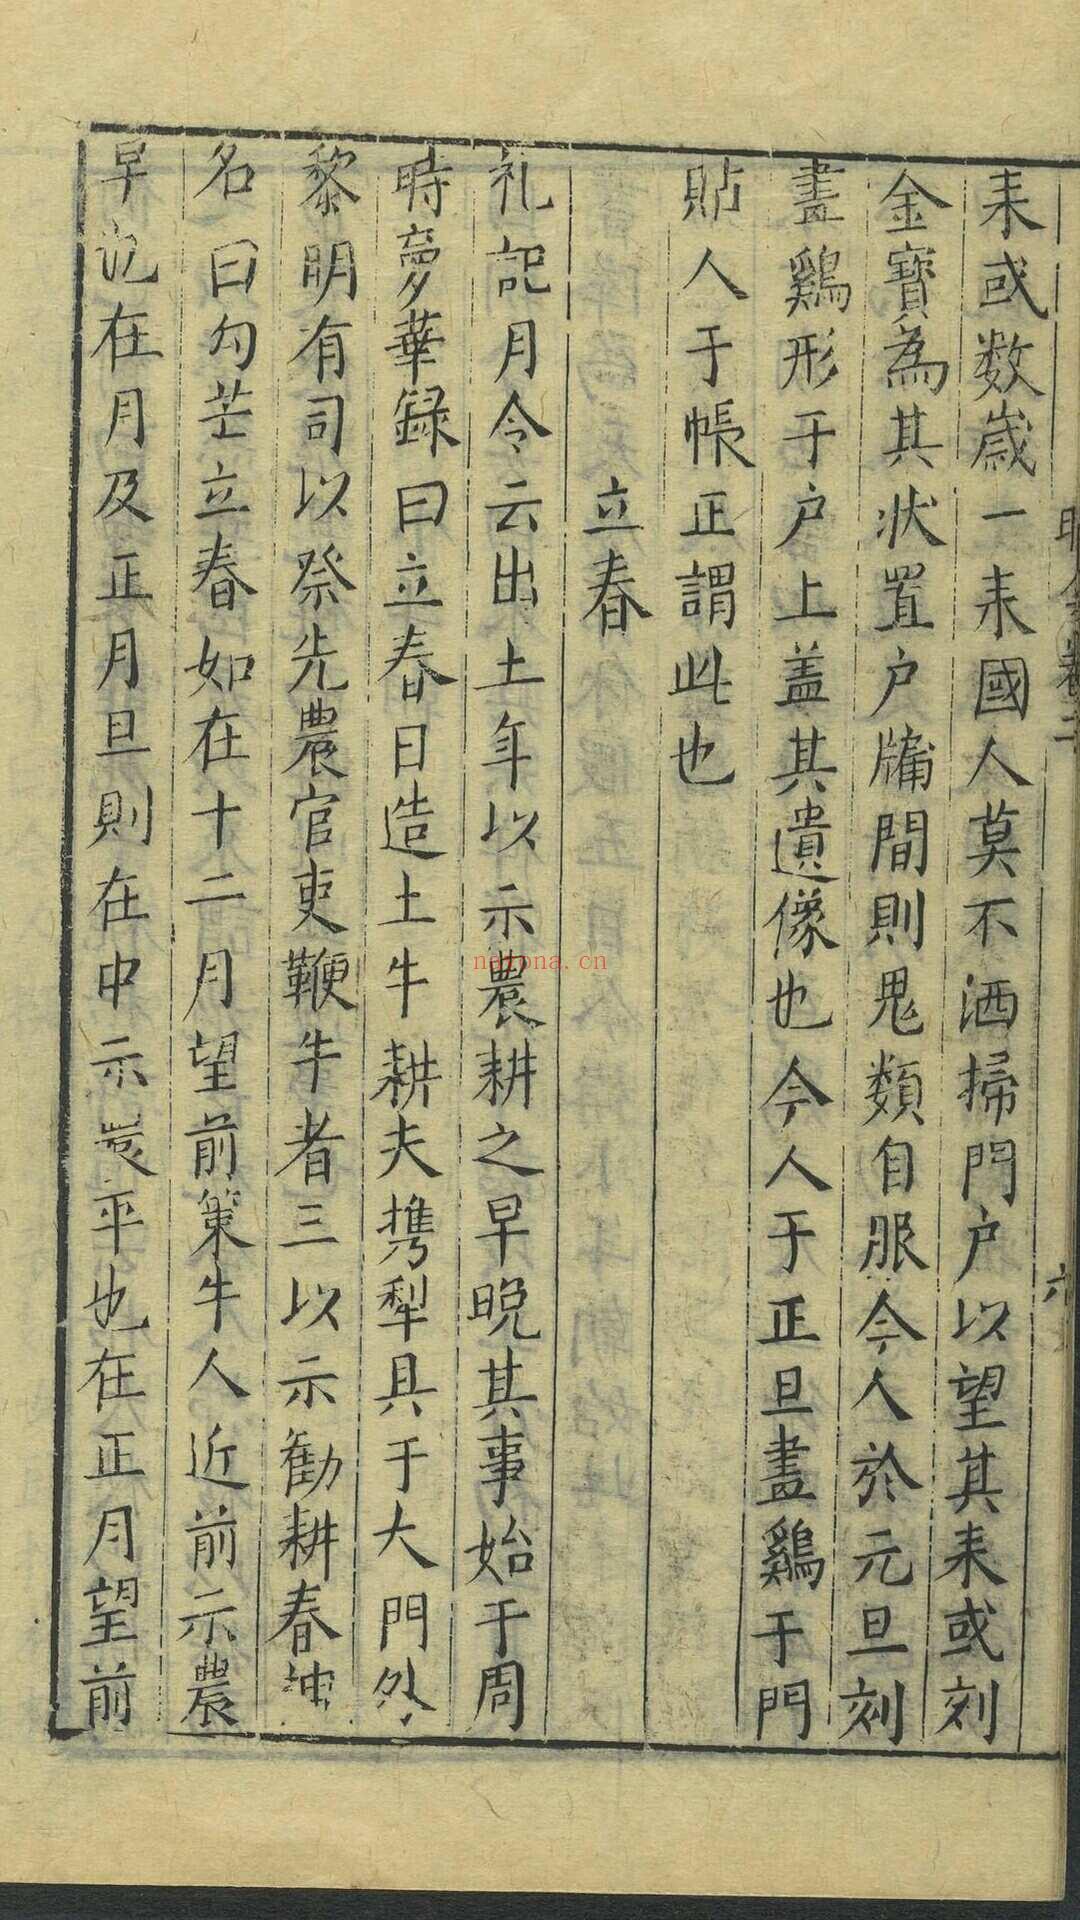 来或数歲一来國人莫不洒掃門户以望其来或刻
金寳為其状置户牖間則鬼類自服今人於元旦刻
畫鷄形于户上盖其遺像也今人于正旦畫鷄于門
貼人于帳正謂此也
立春
礼記月令云出土牛以示農耕之早晚其事始于周
時夢華録曰立春日造土牛耕夫携犁具于大門外
黎明有司以祭先農官吏鞭牛者三以示勸耕春神
名曰勾芒立春如在十二月望前策牛人近前示農
早也在月及正月旦則在中示農平也在正月望前
nayona.cn